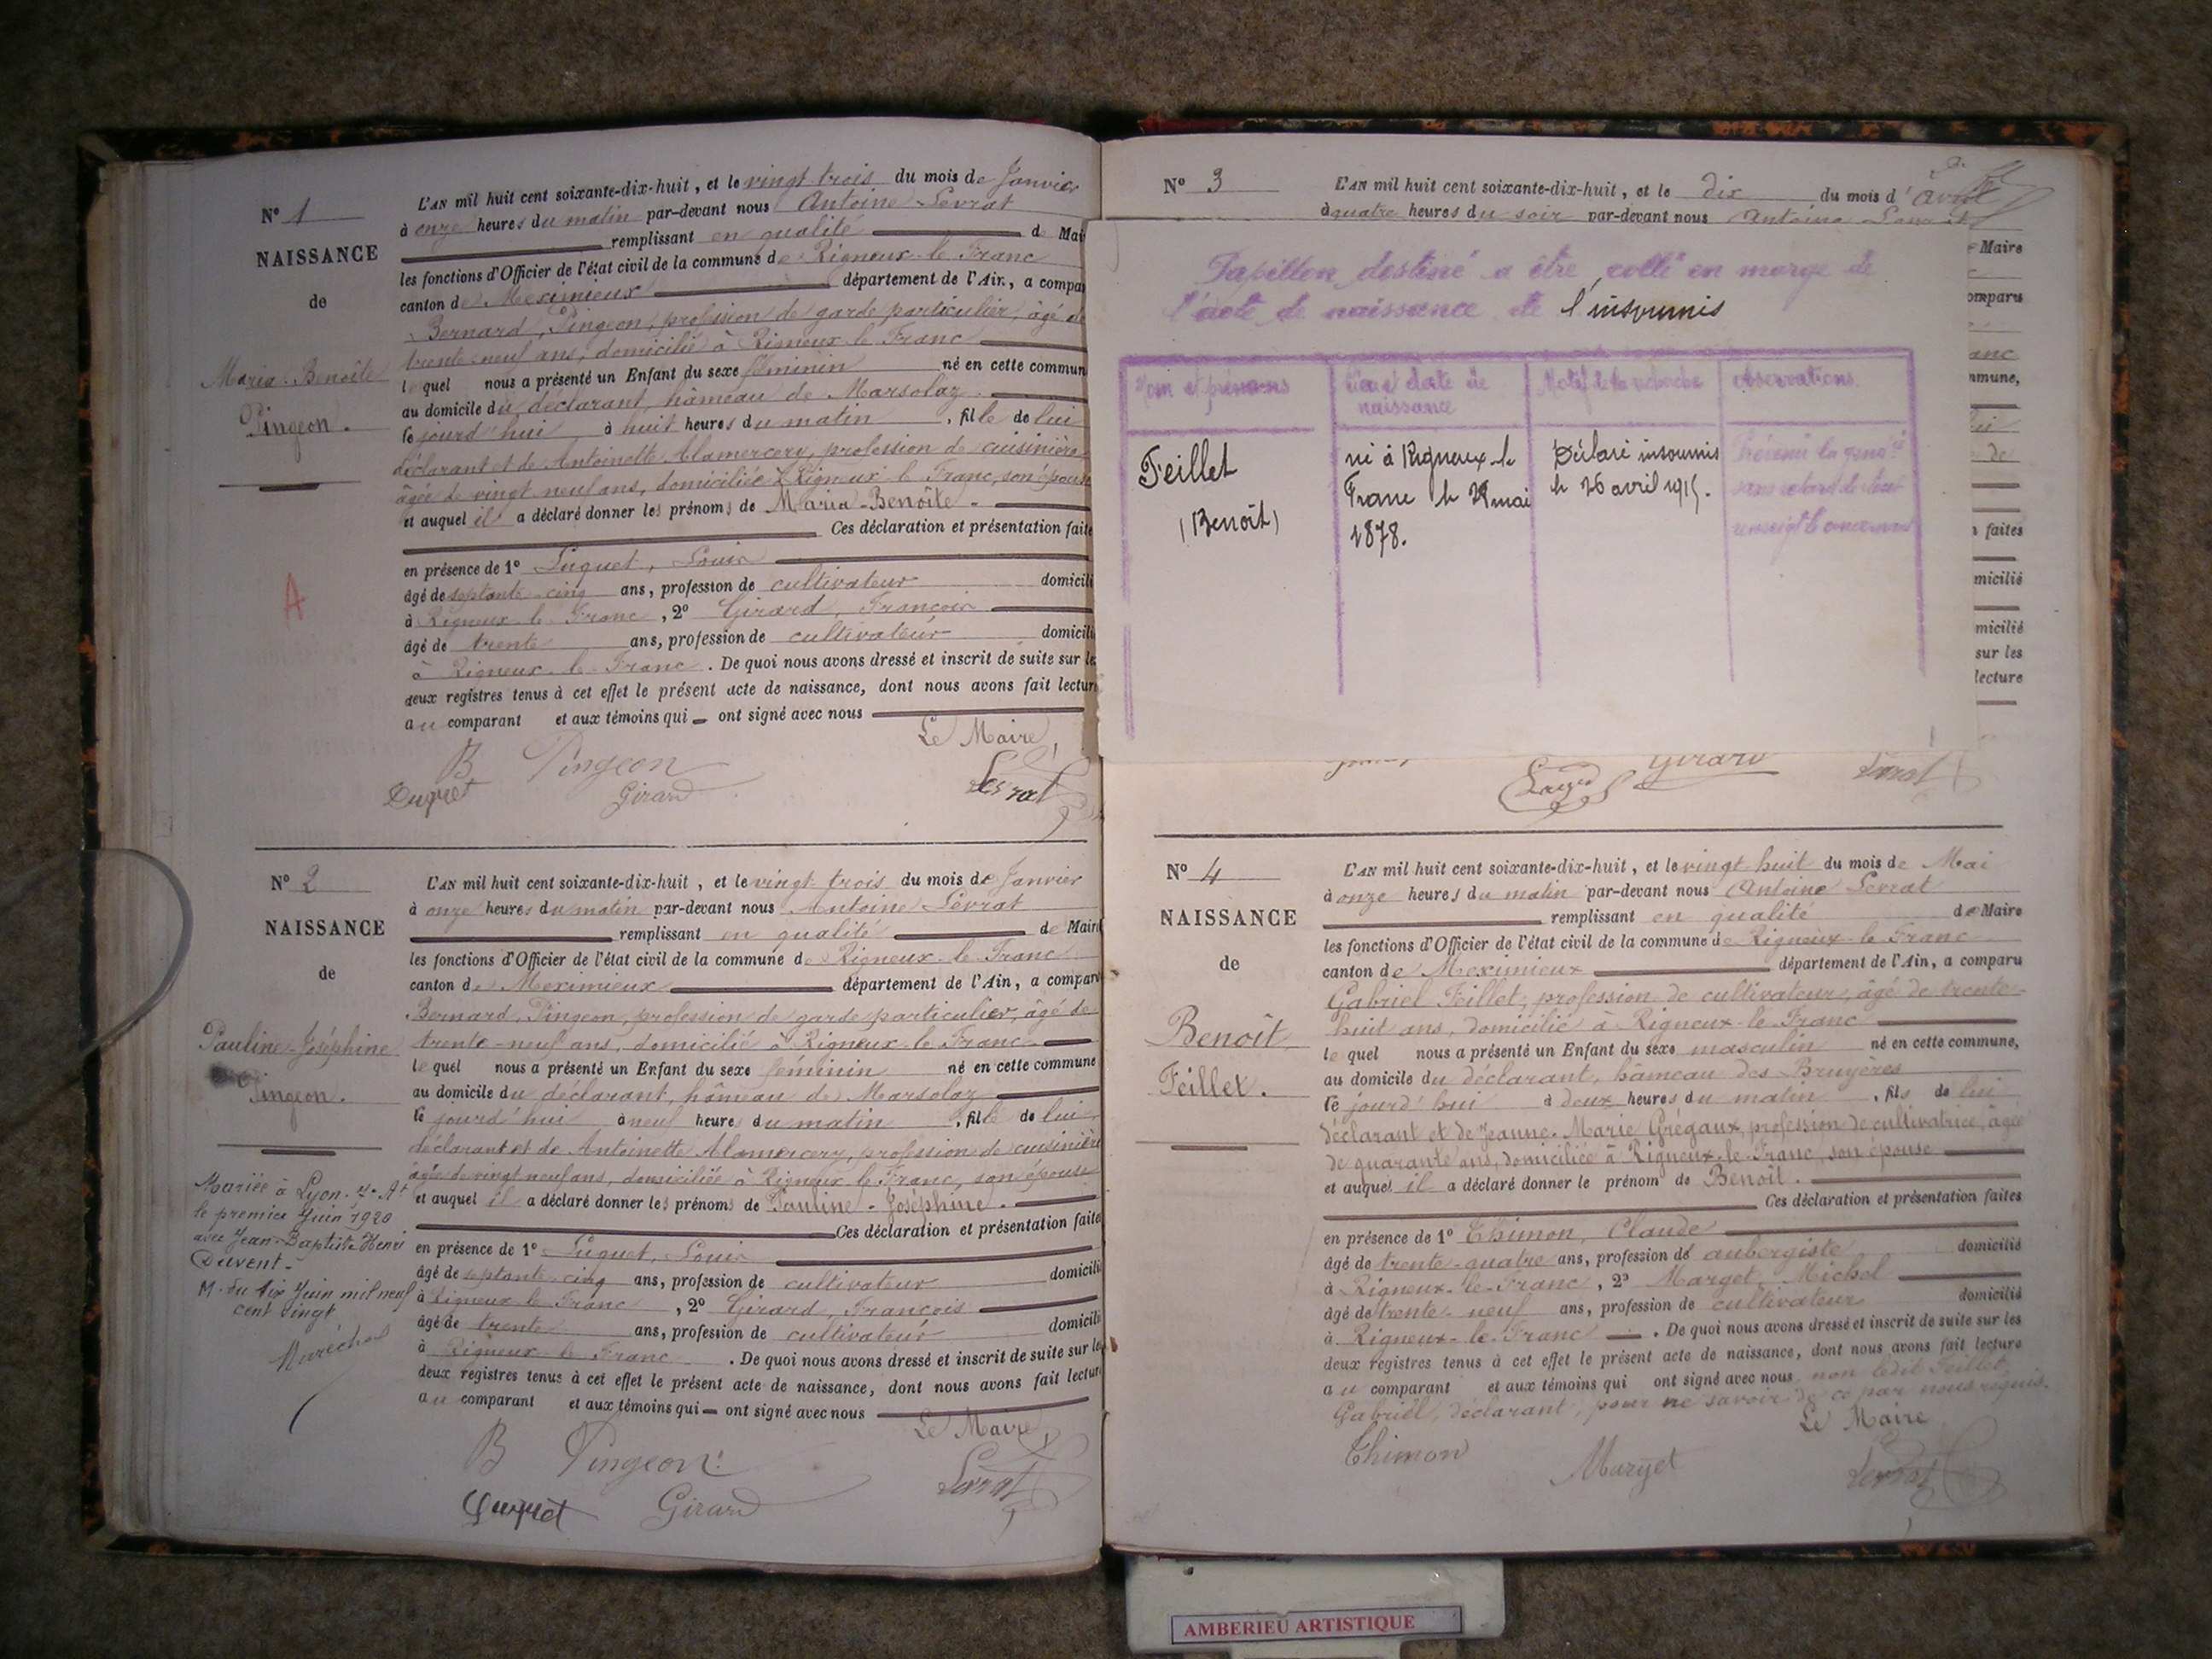 N° 1
NAISSANCE
de
Maria-Benoîte
Pingeon.
A
L'AN mil huit cent soixante-dix-huit, et le vingt trois du mois de Janvier
à onze heures du matin par-devant nous Antoine Levrat
remplissant en qualité de Mai
les fonctions d'Officier de l'état civil de la commune de Rigneux-le Franc
canton de Meximieux département de l'Ain, a compa
Bernard, Pingeon, profession de garde particulier, âgé de
trente-neuf ans, domicilié à Rigneux le Franc
lequel nous a présenté un Enfant du sexe féminin né en cette commun
au domicile du déclarant, hâmeau de Marsolaz
ce jourd'hui à huit heures du matin, fille de lui
déclarant et de Antoinette Alamercery, profession de cuisinière
âgée de vingt neuf ans, domiciliée à Rigneux le Franc, son épouse
et auquel il a déclaré donner les prénoms de Maria-Benoîte.
Ces déclaration et présentation faite
en présence de 1° Luquet, Louis
âgé de septante-cinq ans, profession de cultivateur domicili
à Rigneux le Franc, 2° Girard, François
âgé de trente ans, profession de cultivateur domicili
à Rigneux-le-Franc. De quoi nous avons dressé et inscrit de suite sur le
deux registres tenus à cet effet le présent acte de naissance, dont nous avons fait lectur
au comparant et aux témoins qui ont signé avec nous
Le Maire
B Pingeon
Luquet Girard Levrat
N° 2
NAISSANCE
de
Pauline-Joséphine
Pingeon.
Mariée à Lyon 7e At
le premier Juin 1920
avec Jean-Baptiste Henri
Duvent-
M. du dix Juin mil neuf
cent vingt
Maréchal
L'AN mil huit cent soixante-dix-huit, et le vingt trois du mois de Janvier
à onze heures du matin par-devant nous Antoine Levrat
remplissant en qualité de Mair
les fonctions d'Officier de l'état civil de la commune de Rigneux le Franc
canton de Meximieux département de l'Ain, a compar
Bernard, Pingeon, profession de garde particulier, âgé de
trente-neuf ans, domicilié à Rigneux le Franc
lequel nous a présenté un Enfant du sexe féminin né en cette commune
au domicile du déclarant, hâmeau de Marsolaz
ce jourd'hui à neuf heures du matin, fille de lui
déclarant et de Antoinette Alamercery, profession de cuisinière
âgée de vingt neuf ans, domiciliée à Rigneux le Franc, son épouse
et auquel il a déclaré donner les prénoms de Pauline-Joséphine.
Ces déclaration et présentation faite
en présence de 1° Luquet, Louis
âgé de septante-cinq ans, profession de cultivateur domicili
à Rigneux le Franc, 2° Girard, François
âgé de trente ans, profession de cultivateur domicili
à Rigneux le Franc. De quoi nous avons dressé et inscrit de suite sur le
deux registres tenus à cet effet le présent acte de naissance, dont nous avons fait lectur
au comparant et aux témoins qui ont signé avec nous
Le Maire
B Pingeon
Luquet Girard Levrat
N° 3
L'AN mil huit cent soixante-dix-huit, et le dix du mois d'avril
à quatre heures du soir par-devant nous Antoine Levrat
Maire
omparu
anc
mmune,
lui
de
faites
micilié
micilié
sur les
lecture
Papillon destiné a être collé en marge de
l'acte de naissance de l'insoumis
Nom et prénoms
Lieu et date de naissance
Motif de la recherche
observations
Feillet
(Benoît)
né à Rigneux-le
Franc le 28 mai
1878.
Déclaré insoumis
le 26 avril 1915.
Prévenir la gend
Girard Levrat
N° 4
NAISSANCE
de
Benoît
Feillet.
L'AN mil huit cent soixante-dix-huit, et le vingt huit du mois de Mai
à onze heures du matin par-devant nous Antoine Levrat
remplissant en qualité de Maire
les fonctions d'Officier de l'état civil de la commune de Rigneux-le Franc
canton de Meximieux département de l'Ain, a comparu
Gabriel Feillet, profession de cultivateur, âgé de trente-
huit ans, domicilié à Rigneux-le Franc
lequel nous a présenté un Enfant du sexe masculin né en cette commune,
au domicile du déclarant, hâmeau des Bruyères
ce jourd'hui à deux heures du matin, fils de lui
déclarant et de Jeanne-Marie Grégaux, profession de cultivatrice, âgée
de quarante ans, domiciliée à Rigneux-le-Franc, son épouse
et auquel il a déclaré donner le prénom de Benoît.
Ces déclaration et présentation faites
en présence de 1° Thimon, Claude
âgé de trente-quatre ans, profession de aubergiste domicilié
à Rigneux-le-Franc, 2° Marget, Michel
âgé de trente-neuf ans, profession de cultivateur domicilié
à Rigneux-le-Franc. De quoi nous avons dressé et inscrit de suite sur les
deux registres tenus à cet effet le présent acte de naissance, dont nous avons fait lecture
au comparant et aux témoins qui ont signé avec nous non ledit Feillet
Gabriel, déclarant, pour ne savoir de ce par nous réquis.
Le Maire
Thimon Marget Levrat
AMBERIEU ARTISTIQUE